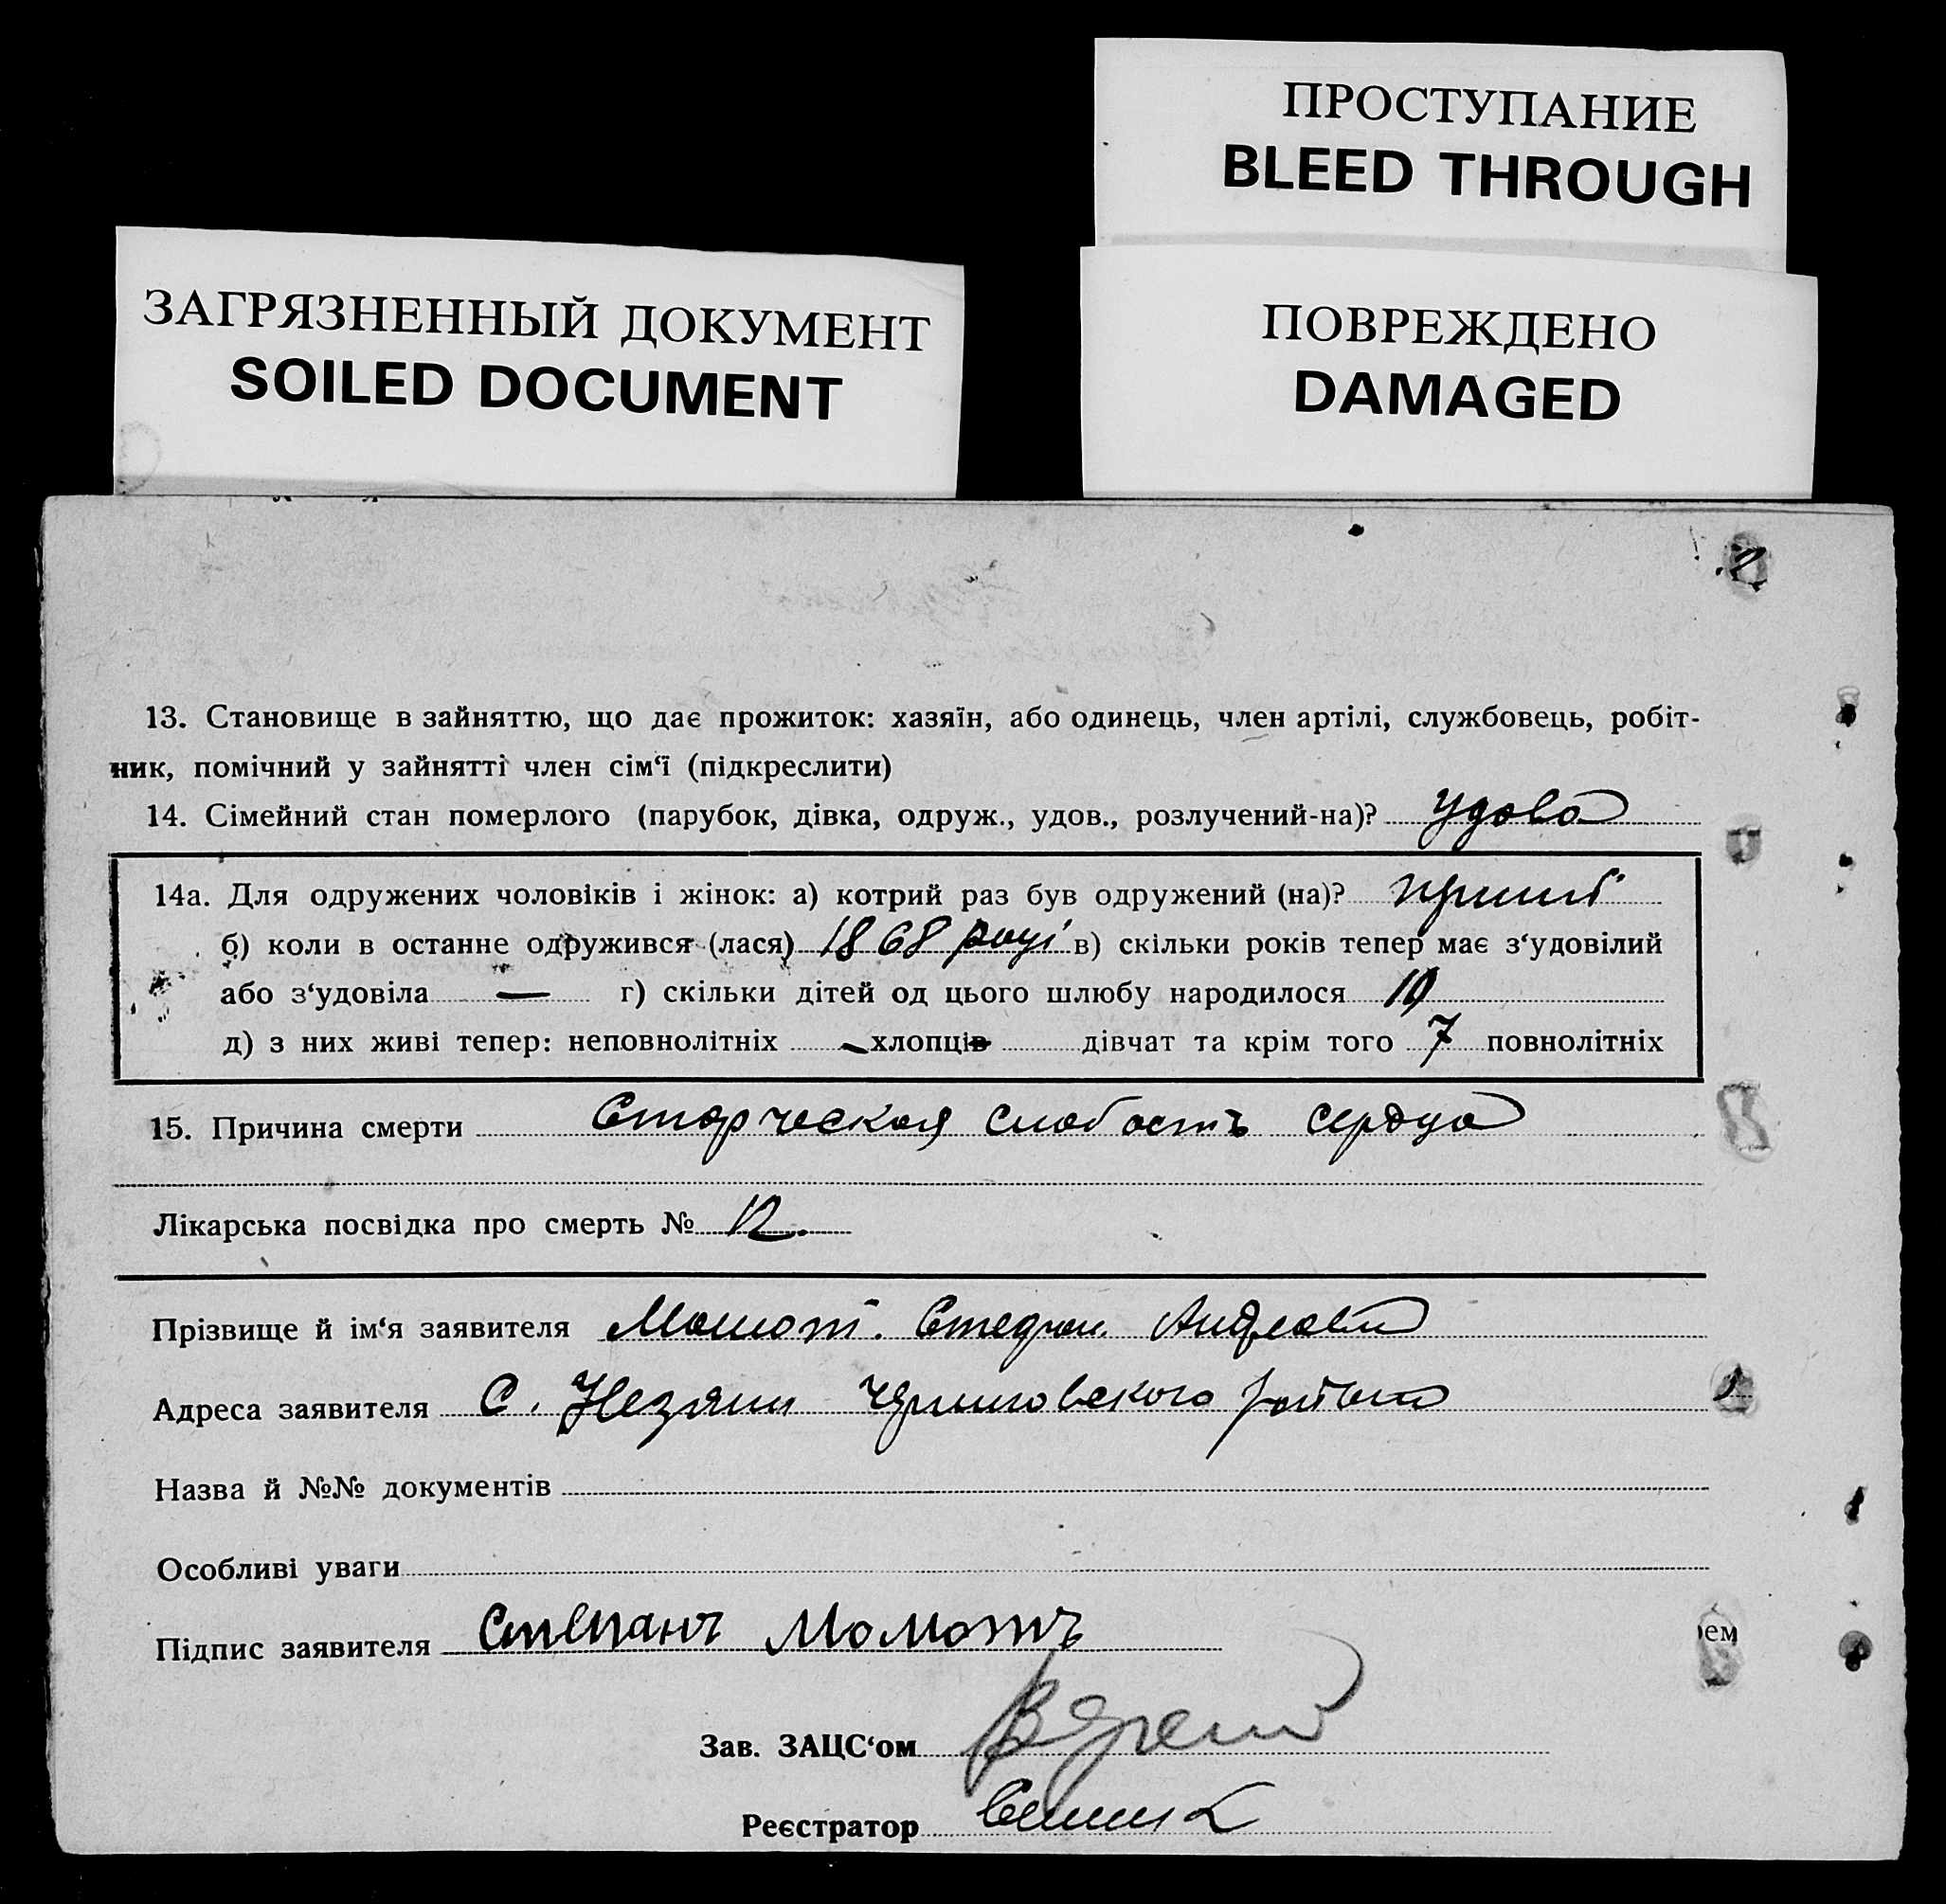 ПРОСТУПАНИЕ
BLEED THROUGH
ЗАГРЯЗНЕННЫЙ ДОКУМЕНТ
SOILED DOCUMENT
ПОВРЕЖДЕНО
DAMAGED
13. Становище в зайняттю, що дає прожиток: хазяїн, або одинець, член артілі, службовець, робіт-
ник, помічний у зайнятті член сім‘ї (підкреслити)
14. Сімейний стан померлого (парубок, дівка, одруж., удов., розлучений-на)? удова
14а. Для одружених чоловіків і жінок: а) котрий раз був одружений (на)?
б) коли в останнє одружився (лася) 1868 році в) скільки років тепер має з‘удовілий
або з‘удовіла — г) скільки дітей од цього шлюбу народилося 10
д) з них живі тепер: неповнолітніх — хлопців дівчат та крім того 7 повнолітніх
15. Причина смерти Старческая слабость сердца
Лікарська посвідка про смерть № 12.
Прізвище й ім‘я заявителя Момот. Степан
Адреса заявителя С.
Назва й №№ документів
Особливі уваги
Підпис заявителя Степанъ Момотъ
ем
Зав. ЗАЦС‘ом
Реєстратор